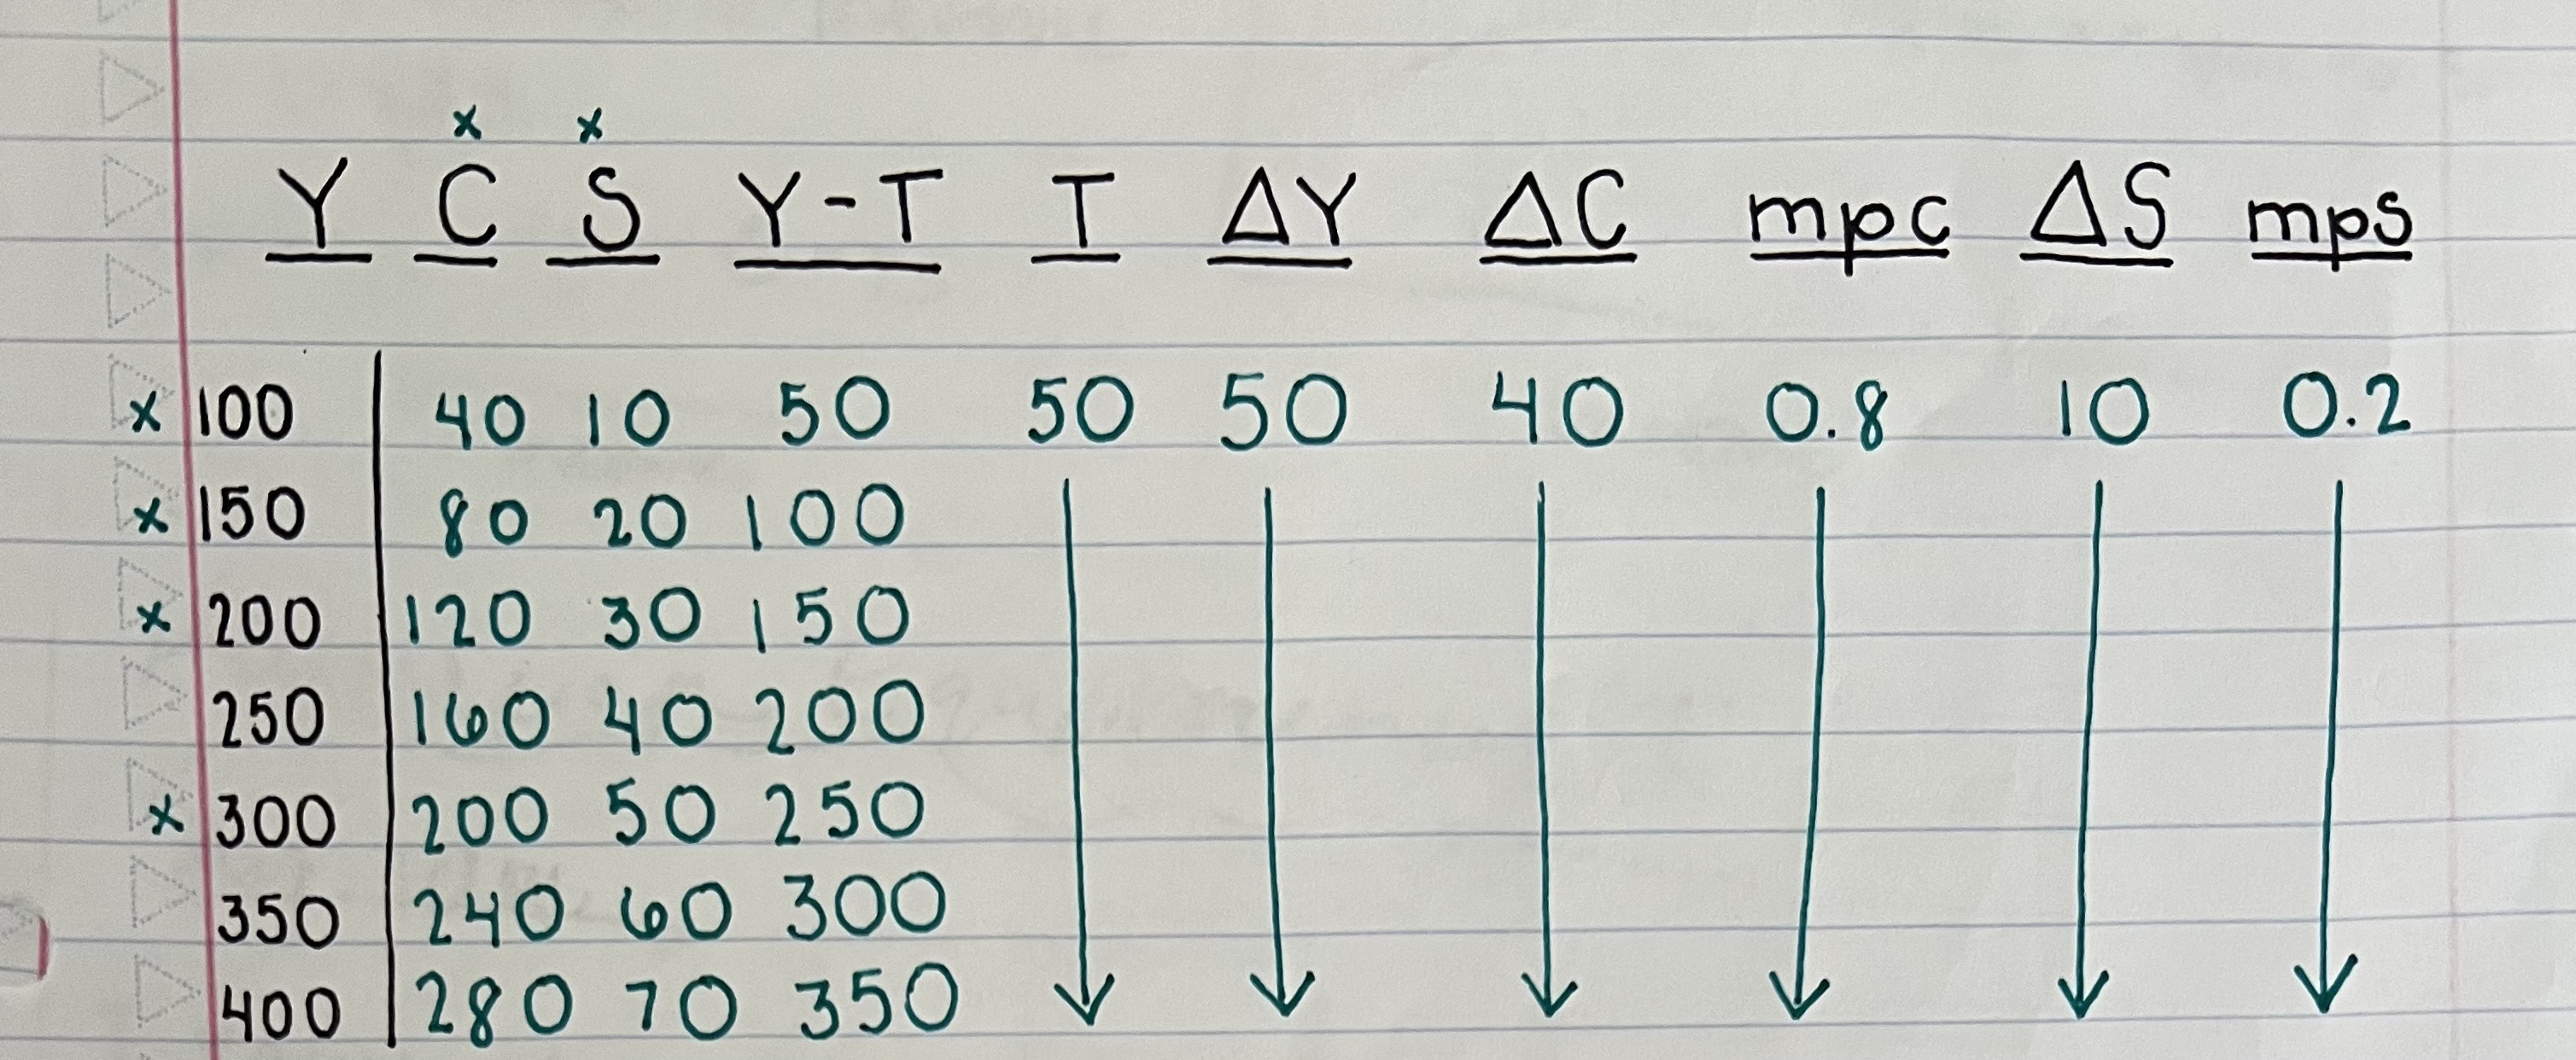 x x
Y C S Y-T T ΔY ΔC mpc ΔS mps
x 100 40 10 50 50 50 40 0.8 10 0.2
x 150 80 20 100
x 200 120 30 150
250 160 40 200
x 300 200 50 250
350 240 60 300
400 280 70 350